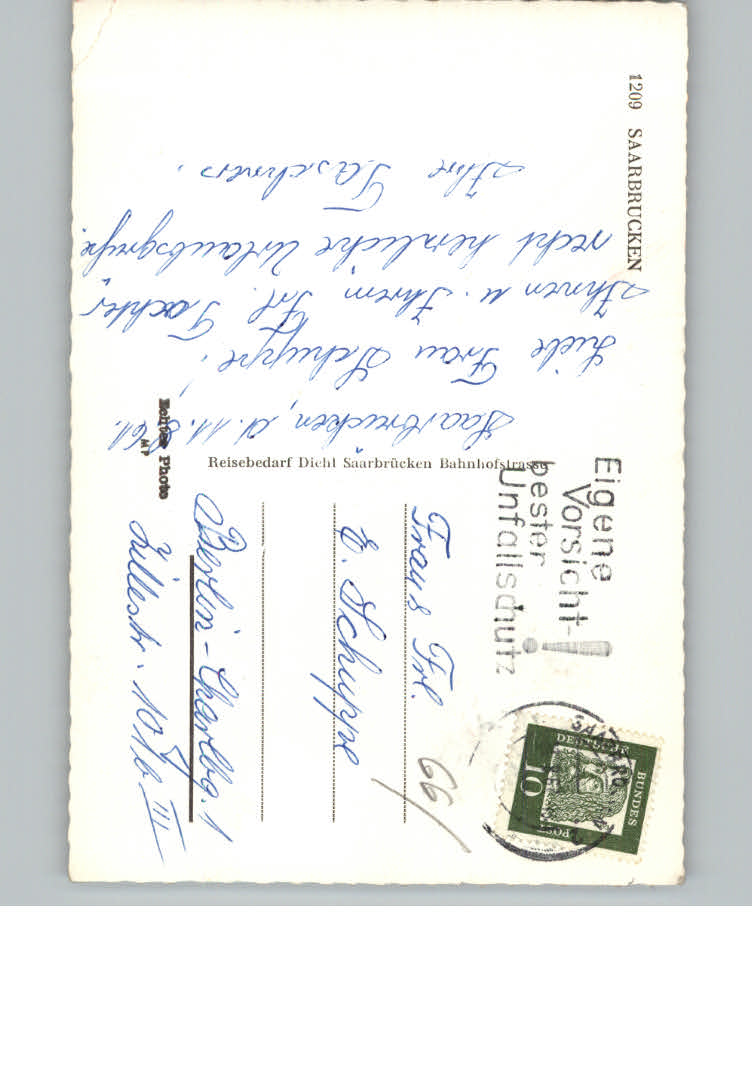 1209 SAARBRUCKEN
Saarbrücken, d. 11.8.61.
Liebe Frau Schuppe!
Ihnen u. Ihrem Frl. Tochter
recht herzliche Urlaubsgrüße.
Ihre Taschners.
Reisebedarf Diehl Saarbrücken Bahnhofstrasse
Photo
Eigene
Vorsicht-
bester
Unfallschutz
SAARBRÜ
DEUTSCHE
BUNDES
POST
10
66/
Frau & Frl.
E. Schuppe
Berlin-Charlbg. 1
Zillestr. 107b III